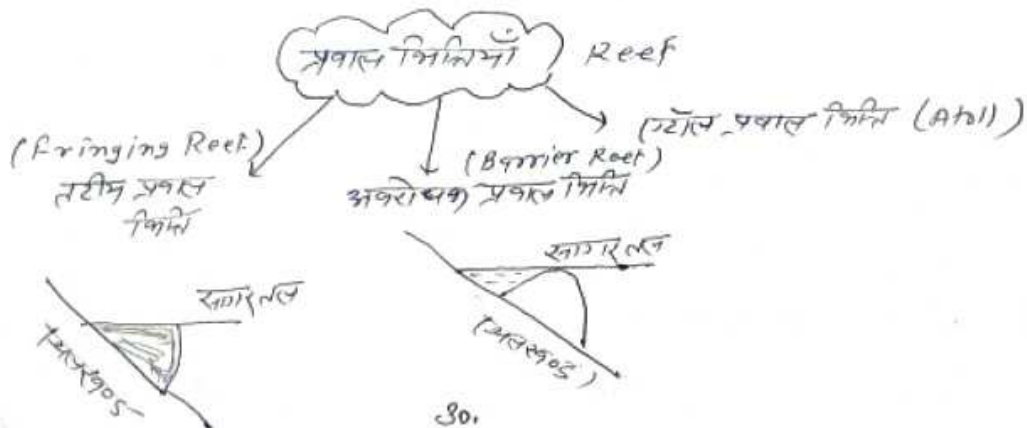 प्रवाल भित्तियाँ Reef
(Fringing Reef)
तटीय प्रवाल
भित्ति
(Barrier Reef)
अवरोधक प्रवाल भित्ति
एटॉल प्रवाल भित्ति (Atoll)
सागर तल
स्थलखण्ड
सागर तल
(स्थलखण्ड)
30.